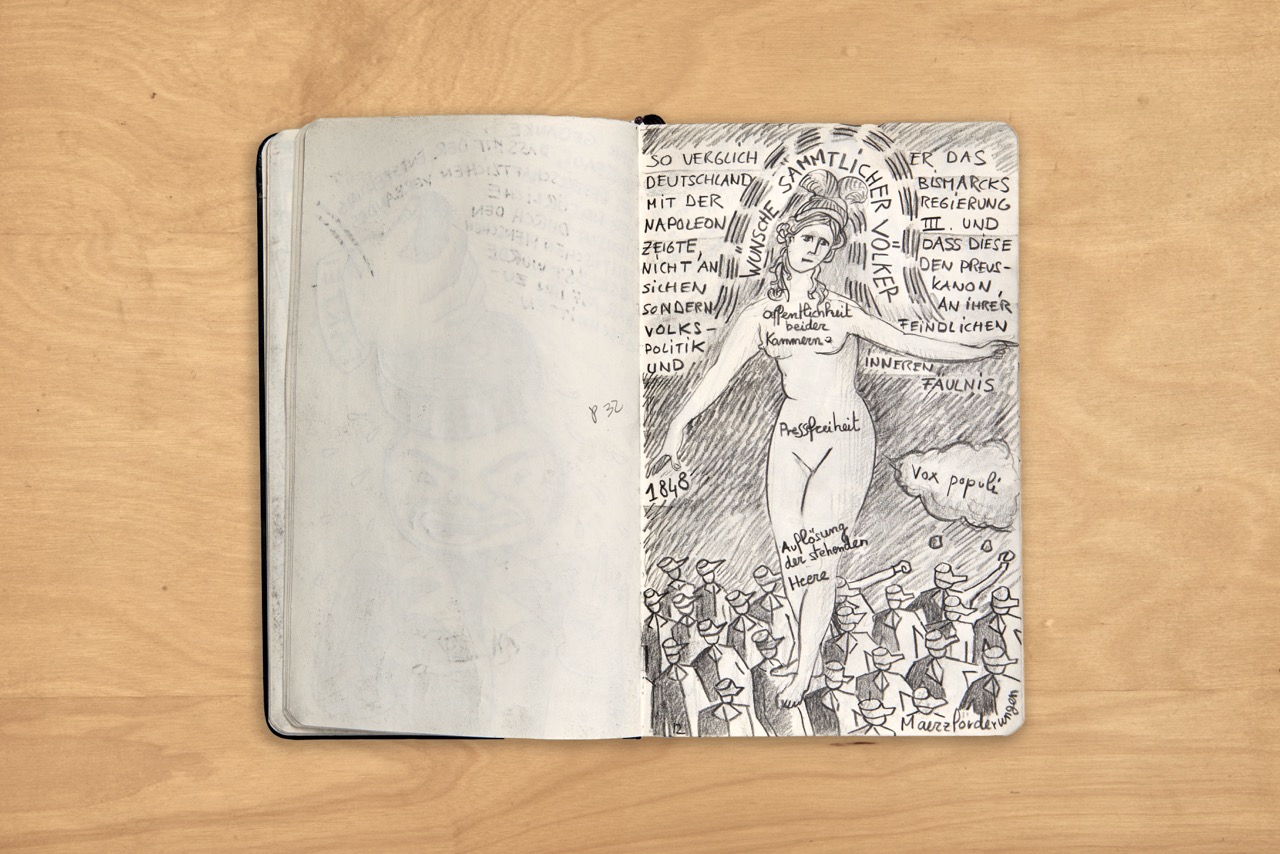 SO VERGLICH ER DAS
DEUTSCHLAND BISMARCKS
MIT DER REGIERUNG
NAPOLEON III. UND
ZEIGTE, DASS DIESE
NICHT AN DEN PREUS-
SICHEN KANON,
SONDERN AN IHRER
VOLKS- FEINDLICHEN
POLITIK
UND INNEREN
FAULNIS
WÜNSCHE SÄMMTLICHER VÖLKER
Öffentlichkeit
beider
Kammern
Pressfreiheit
1848
Vox populi
Auflösung
der stehenden
Heere
Maerzförderungen
12
p 32